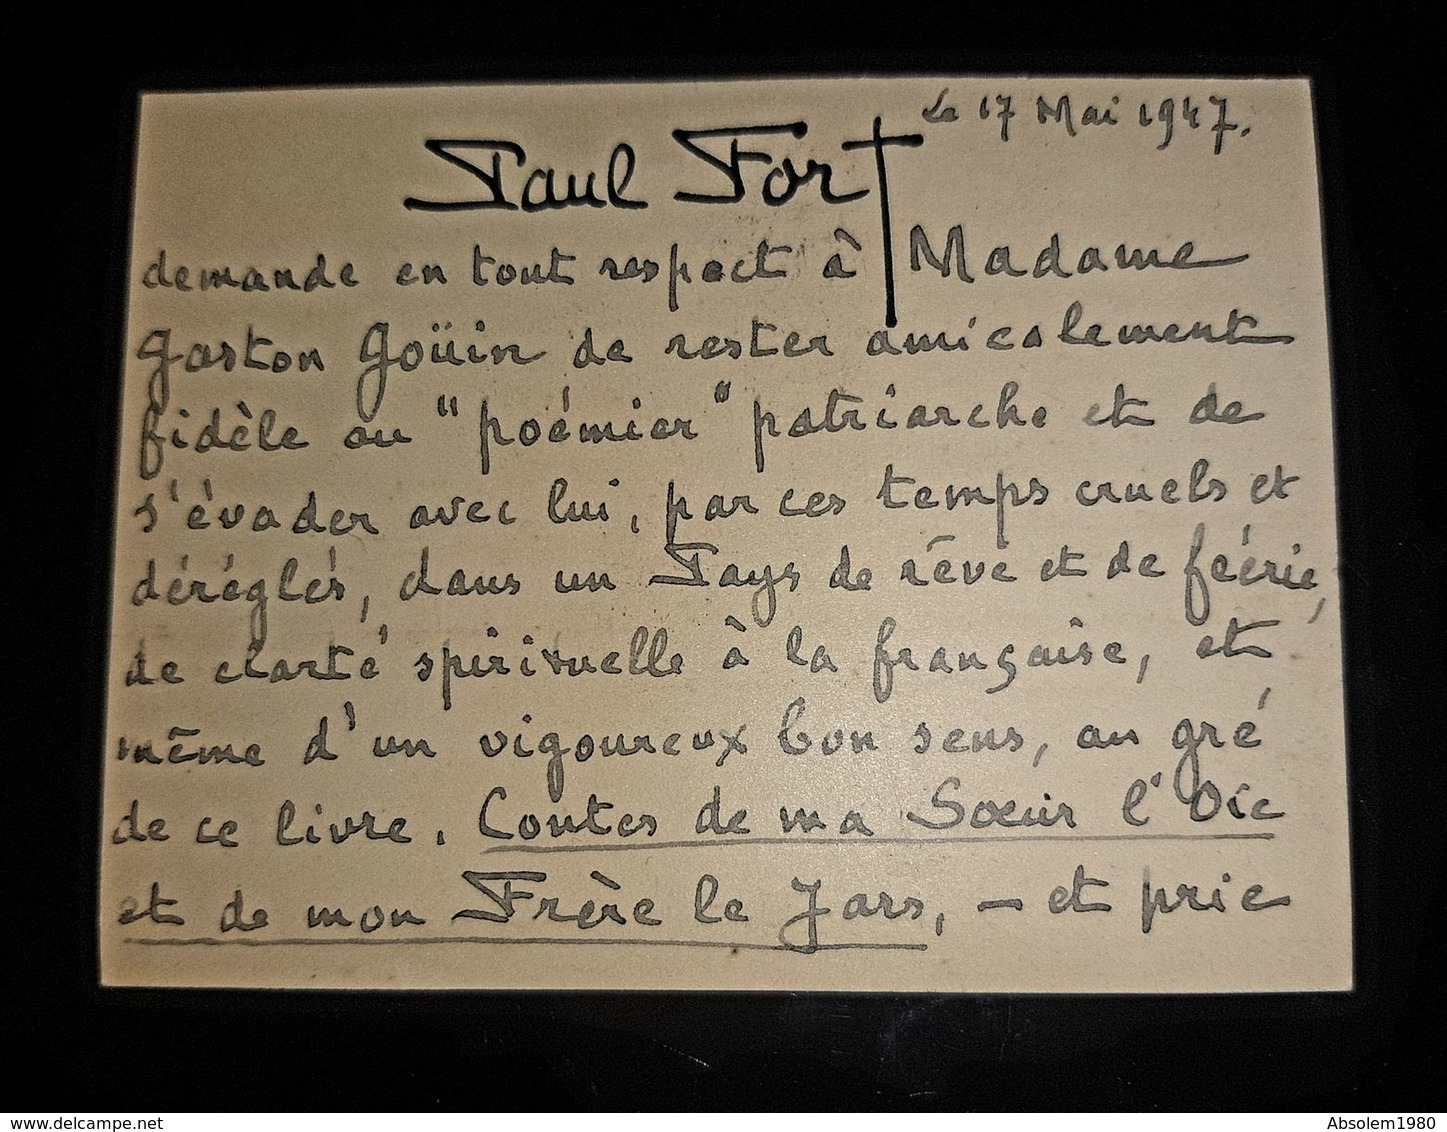 Le 17 Mai 1947.
Paul Fort
demande en tout respect à Madame
Gaston Goüin de rester amicalement
fidèle au "poémier" patriarche et de
s'évader avec lui, par ces temps cruels et
déréglés, dans un Pays de rêve et de féérie,
de clarté spirituelle à la française, et
même d'un vigoureux bon sens, au gré
de ce livre. Contes de ma Sœur l'Oie
et de mon Frère le Jars, — et prie
delcampe.net
Absolem1980